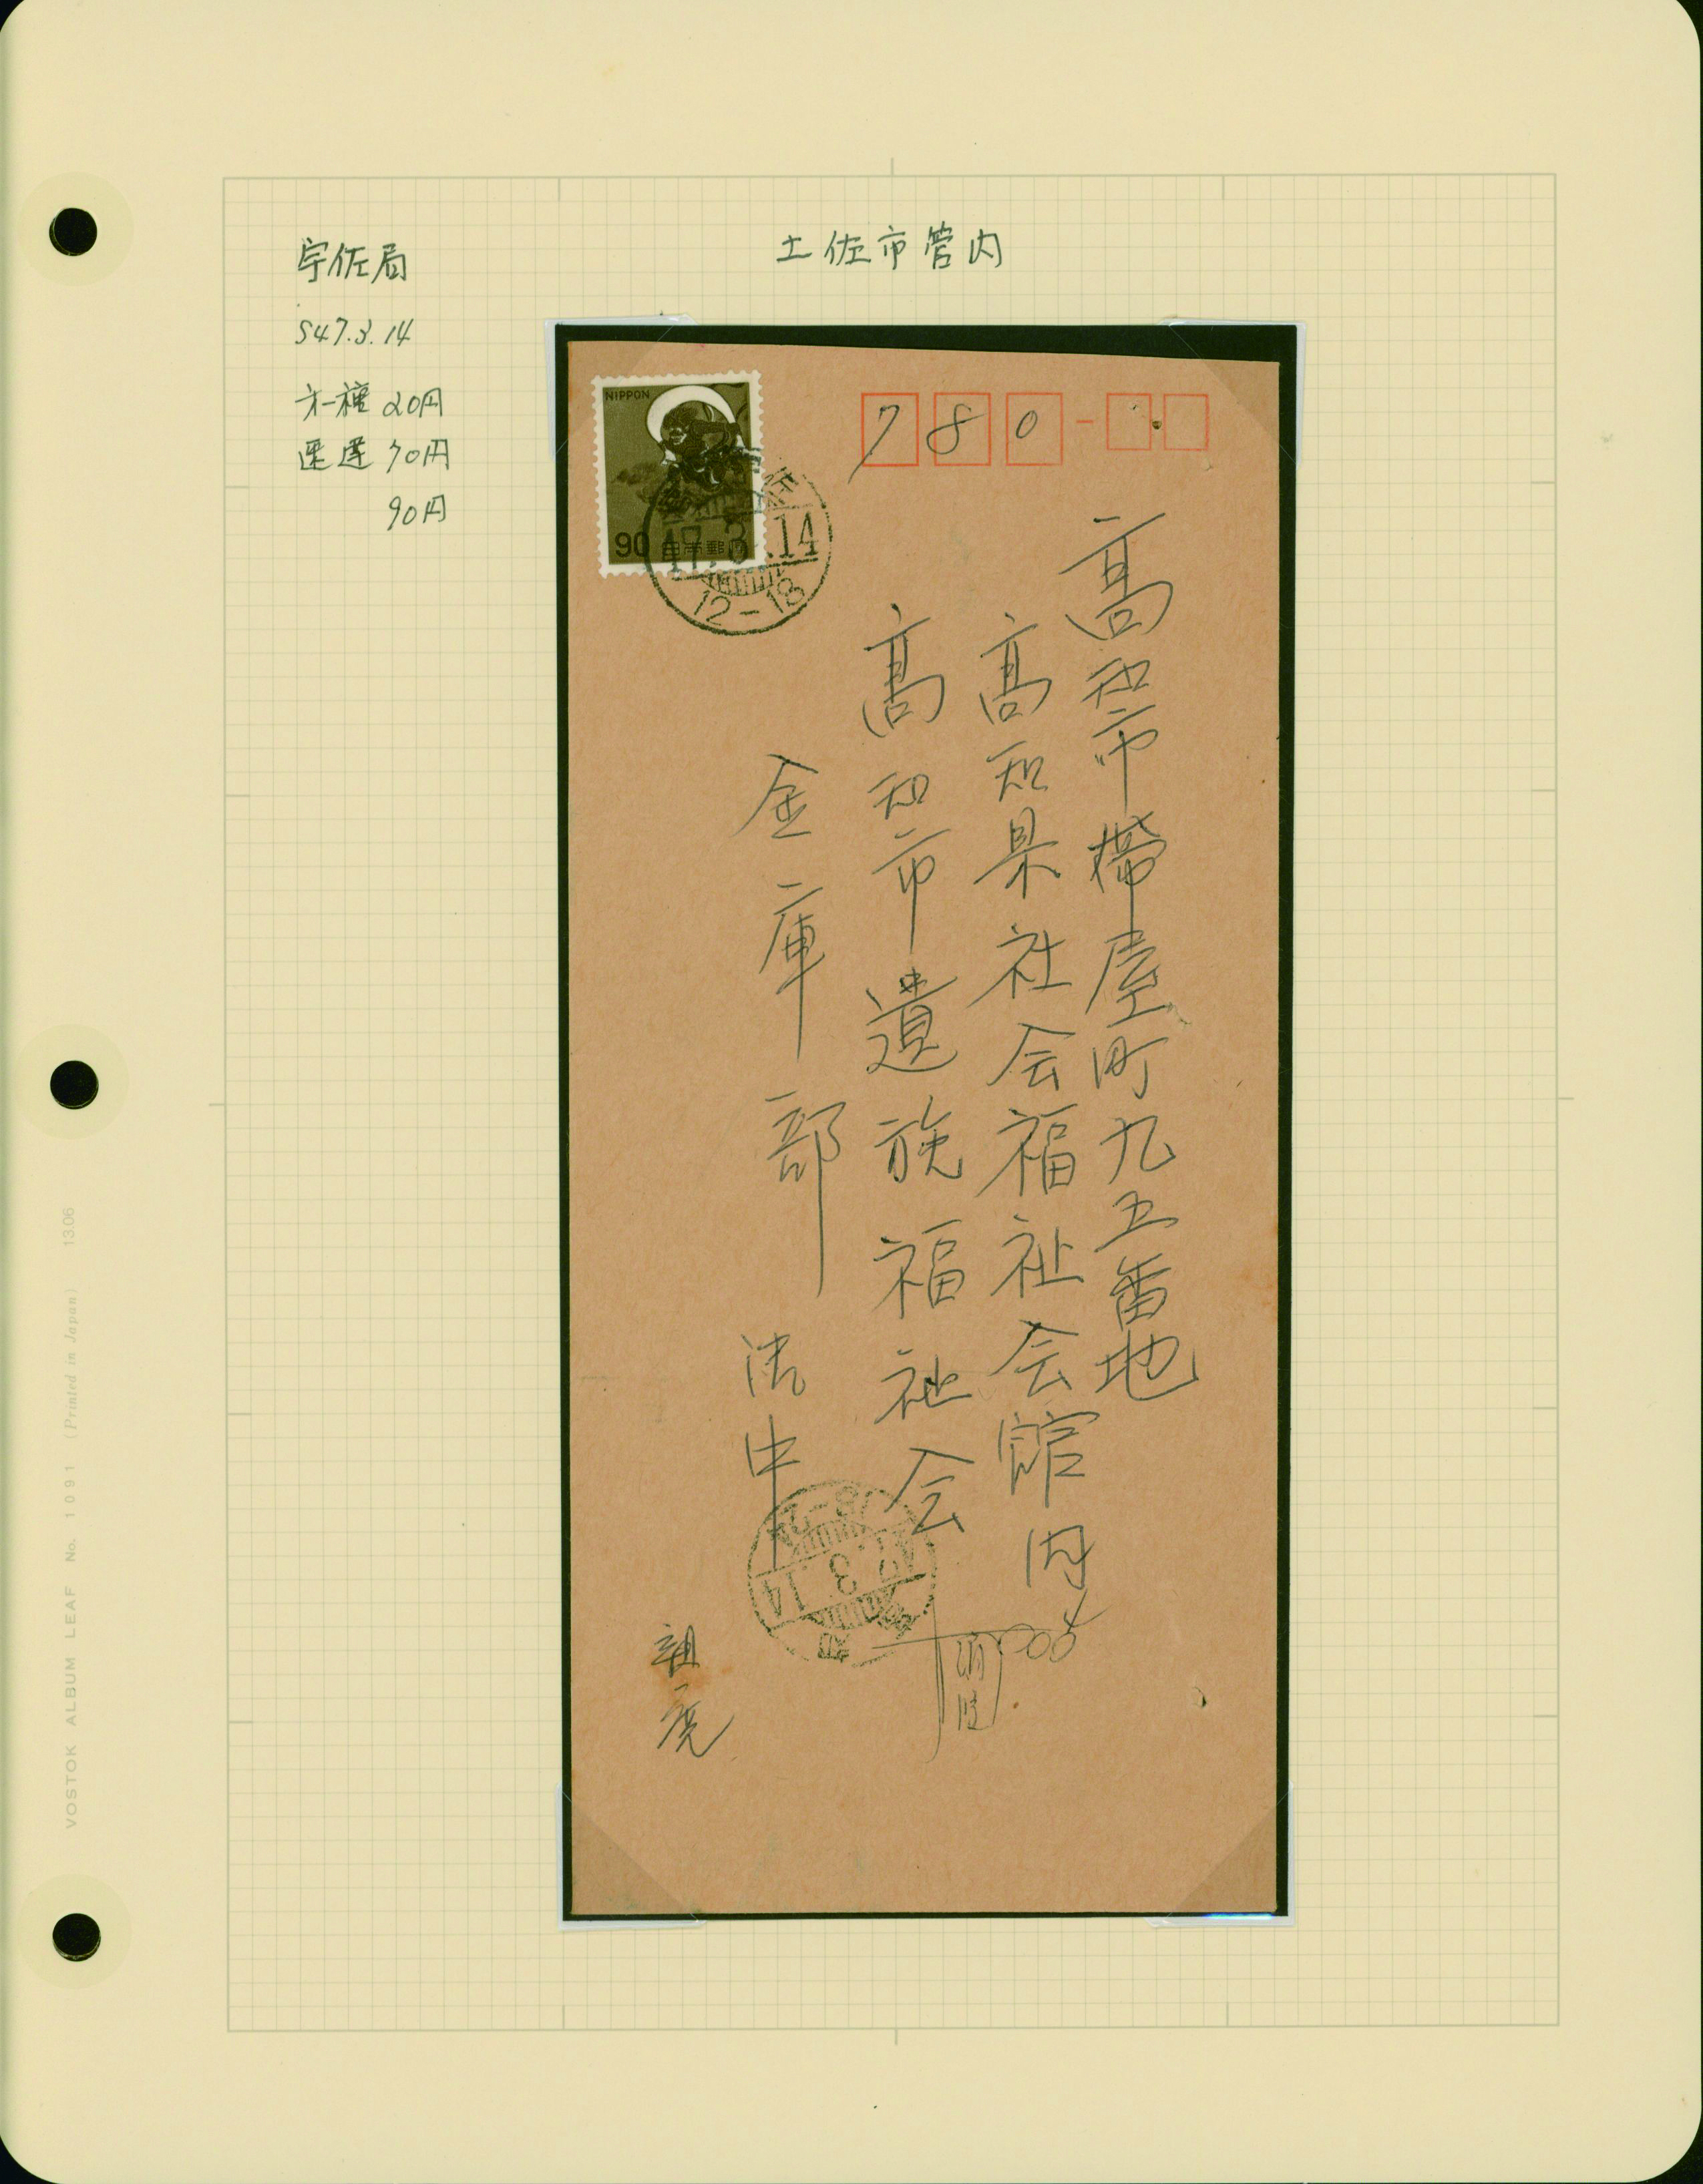 土佐市管内
宇佐局
S47.3.14
才一種 20円
速達 70円
90円
NIPPON
90 日本郵便
47.3.14
12-18
780-
高知市帯屋町九五番地
高知県社会福祉会館内
高知市遺族福祉会
金庫部
御中
47.3.14
親展
VOSTOK ALBUM LEAF No. 1091 (Printed in Japan) 13.06